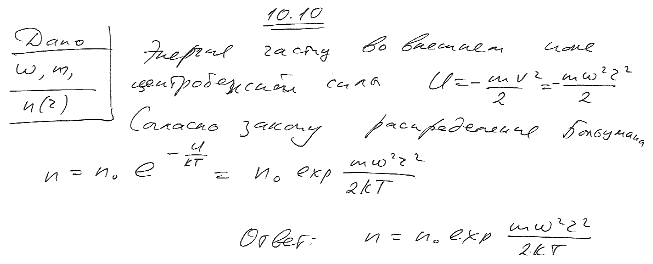 10.10
Дано
ω, m,
n(r)
Энергия частиц во внешнем поле
центробежной силы U = -mv²/2 = -mω²r²/2
Согласно закону распределения Больцмана
n = n₀ e^(-U/kT) = n₀ exp mω²r²/2kT
Ответ: n = n₀ exp mω²r²/2kT